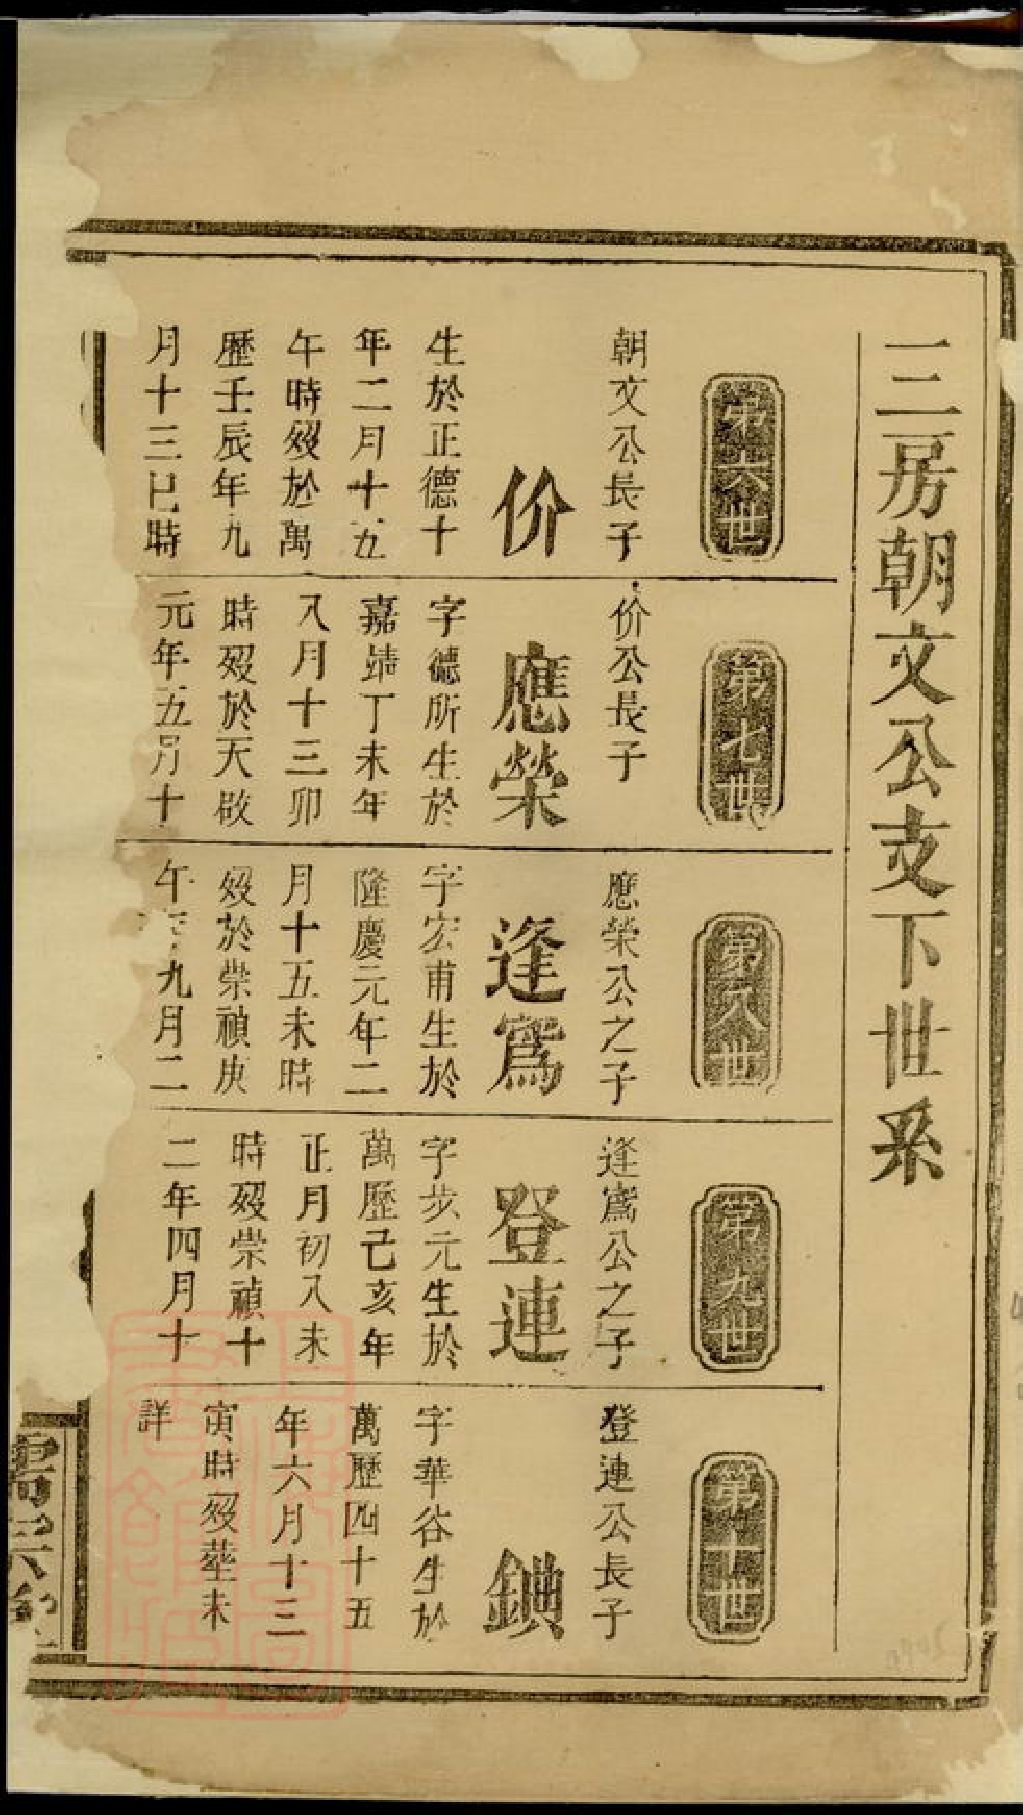 三房朝文公支下世系
第六世
朝文公長子
价
生於正德十
年二月十五
午時歿於萬
歷壬辰年九
月十三巳時
第七世
价公長子
應榮
字德所生於
嘉靖丁未年
八月十三卯
時歿於天啟
元年五月十
第八世
應榮公之子
逢鴌
字宏甫生於
隆慶元年二
月十五未時
歿於崇禎庚
午年九月二
第九世
逢鴌公之子
登連
字步元生於
萬歷己亥年
正月初八未
時歿崇禎十
二年四月十
第十世
登連公長子
鎖
字華谷生於
萬歷四十五
年六月十三
寅時歿塟未
詳